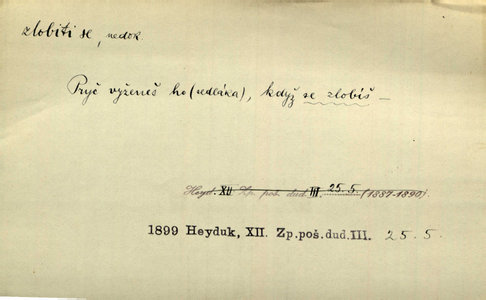 zlobiti se, nedok.
Pryč vyženeš ho (sedláka), když se zlobíš —
Heyd. XII Zp. poš. dud. III. 25.5. (1887-1890).
1899 Heyduk, XII. Zp.poš.dud.III. 25.5.